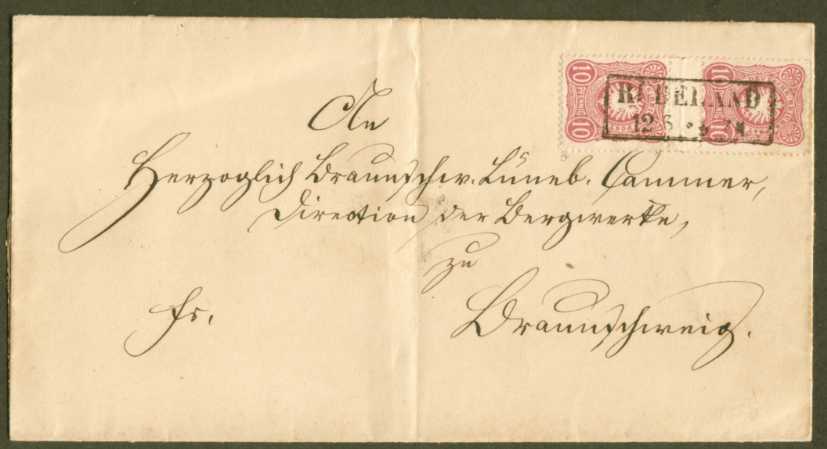 10 10
PFENNIG
10 10
RÜBELAND
12 5
An
Herzoglich Braunschw. Lüneb. Cammer,
Direction der Bergwerke,
zu
Braunschweig.
fr.